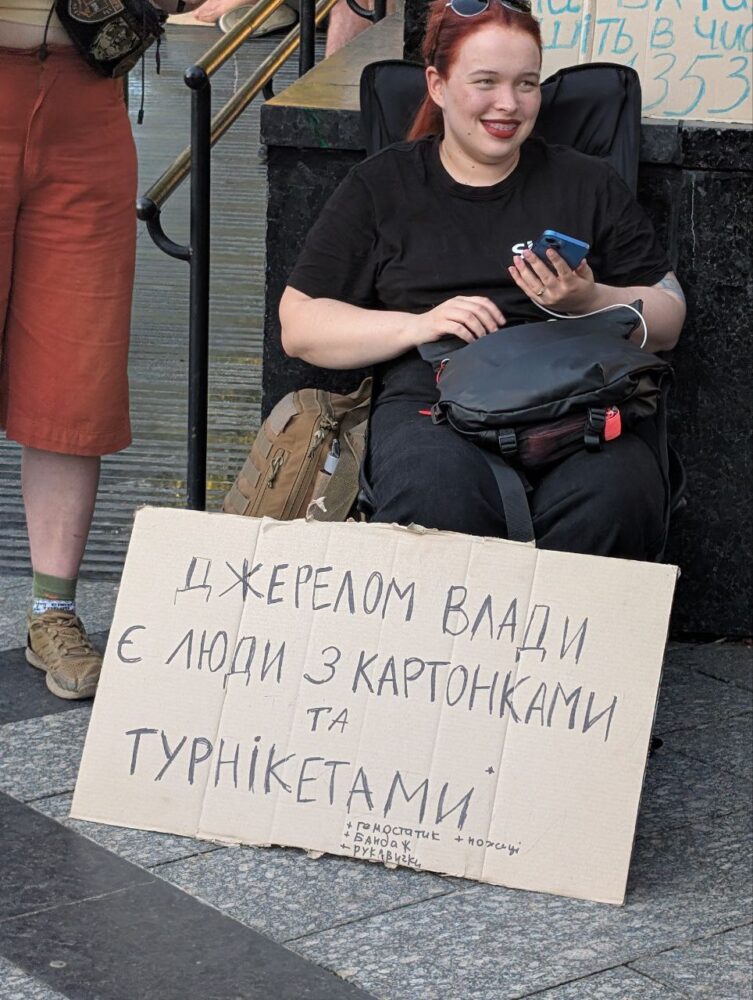 ИТЬ В ЧИ
1353
ДЖЕРЕЛОМ ВЛАДИ
Є ЛЮДИ З КАРТОНКАМИ
ТА
ТУРНІКЕТАМИ*
+ гемостатик + ножиці
+ бандаж
+ рукавички